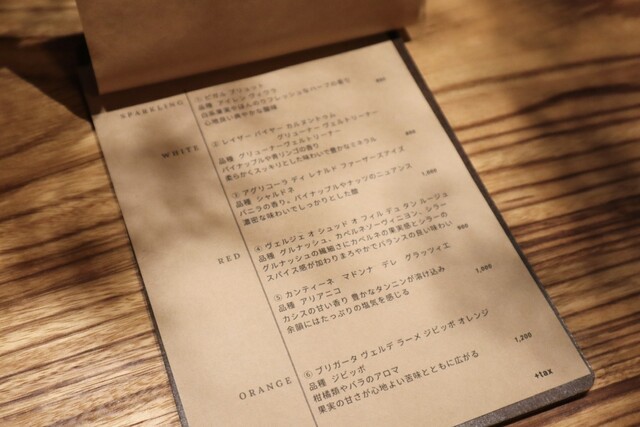 SPARKLING
① ビダル ブリュット 800
品種 アイレン ヴェウラ
白系果実やほんのりフレッシュなハーブの香り
心地良い爽やかな酸味
WHITE
② レイザー バイザー カルヌントゥム
グリューナー ヴェルトリーナー 800
品種 グリューナーヴェルトリーナー
パイナップルや青リンゴの香り
柔らかくスッキリとした味わいで豊かなミネラル
③ アグリコーラ ディ レナルド ファーザーズアイズ 1,000
品種 シャルドネ
バニラの香り。パイナップルやナッツのニュアンス
濃密な味わいでしっかりとした酸
RED
④ ヴェルジェ オ ショッド オ フィル デュ タン ルージュ
品種 グルナッシュ、カベルネソーヴィニヨン、シラー 900
グルナッシュの繊細さにカベルネの果実感とシラーの
スパイス感が加わりまろやかでバランスの良い味わい
⑤ カンティーネ マドンナ デレ グラッツィエ 1,000
品種 アリアニコ
カシスの甘い香り 豊かなタンニンが溶け込み
余韻にはたっぷりの塩気を感じる
ORANGE
⑥ ブリガータ ヴェルデ ラーメ ジビッボ オレンジ 1,200
品種 ジビッボ
柑橘類やバラのアロマ
果実の甘さが心地よい苦味とともに広がる
+tax